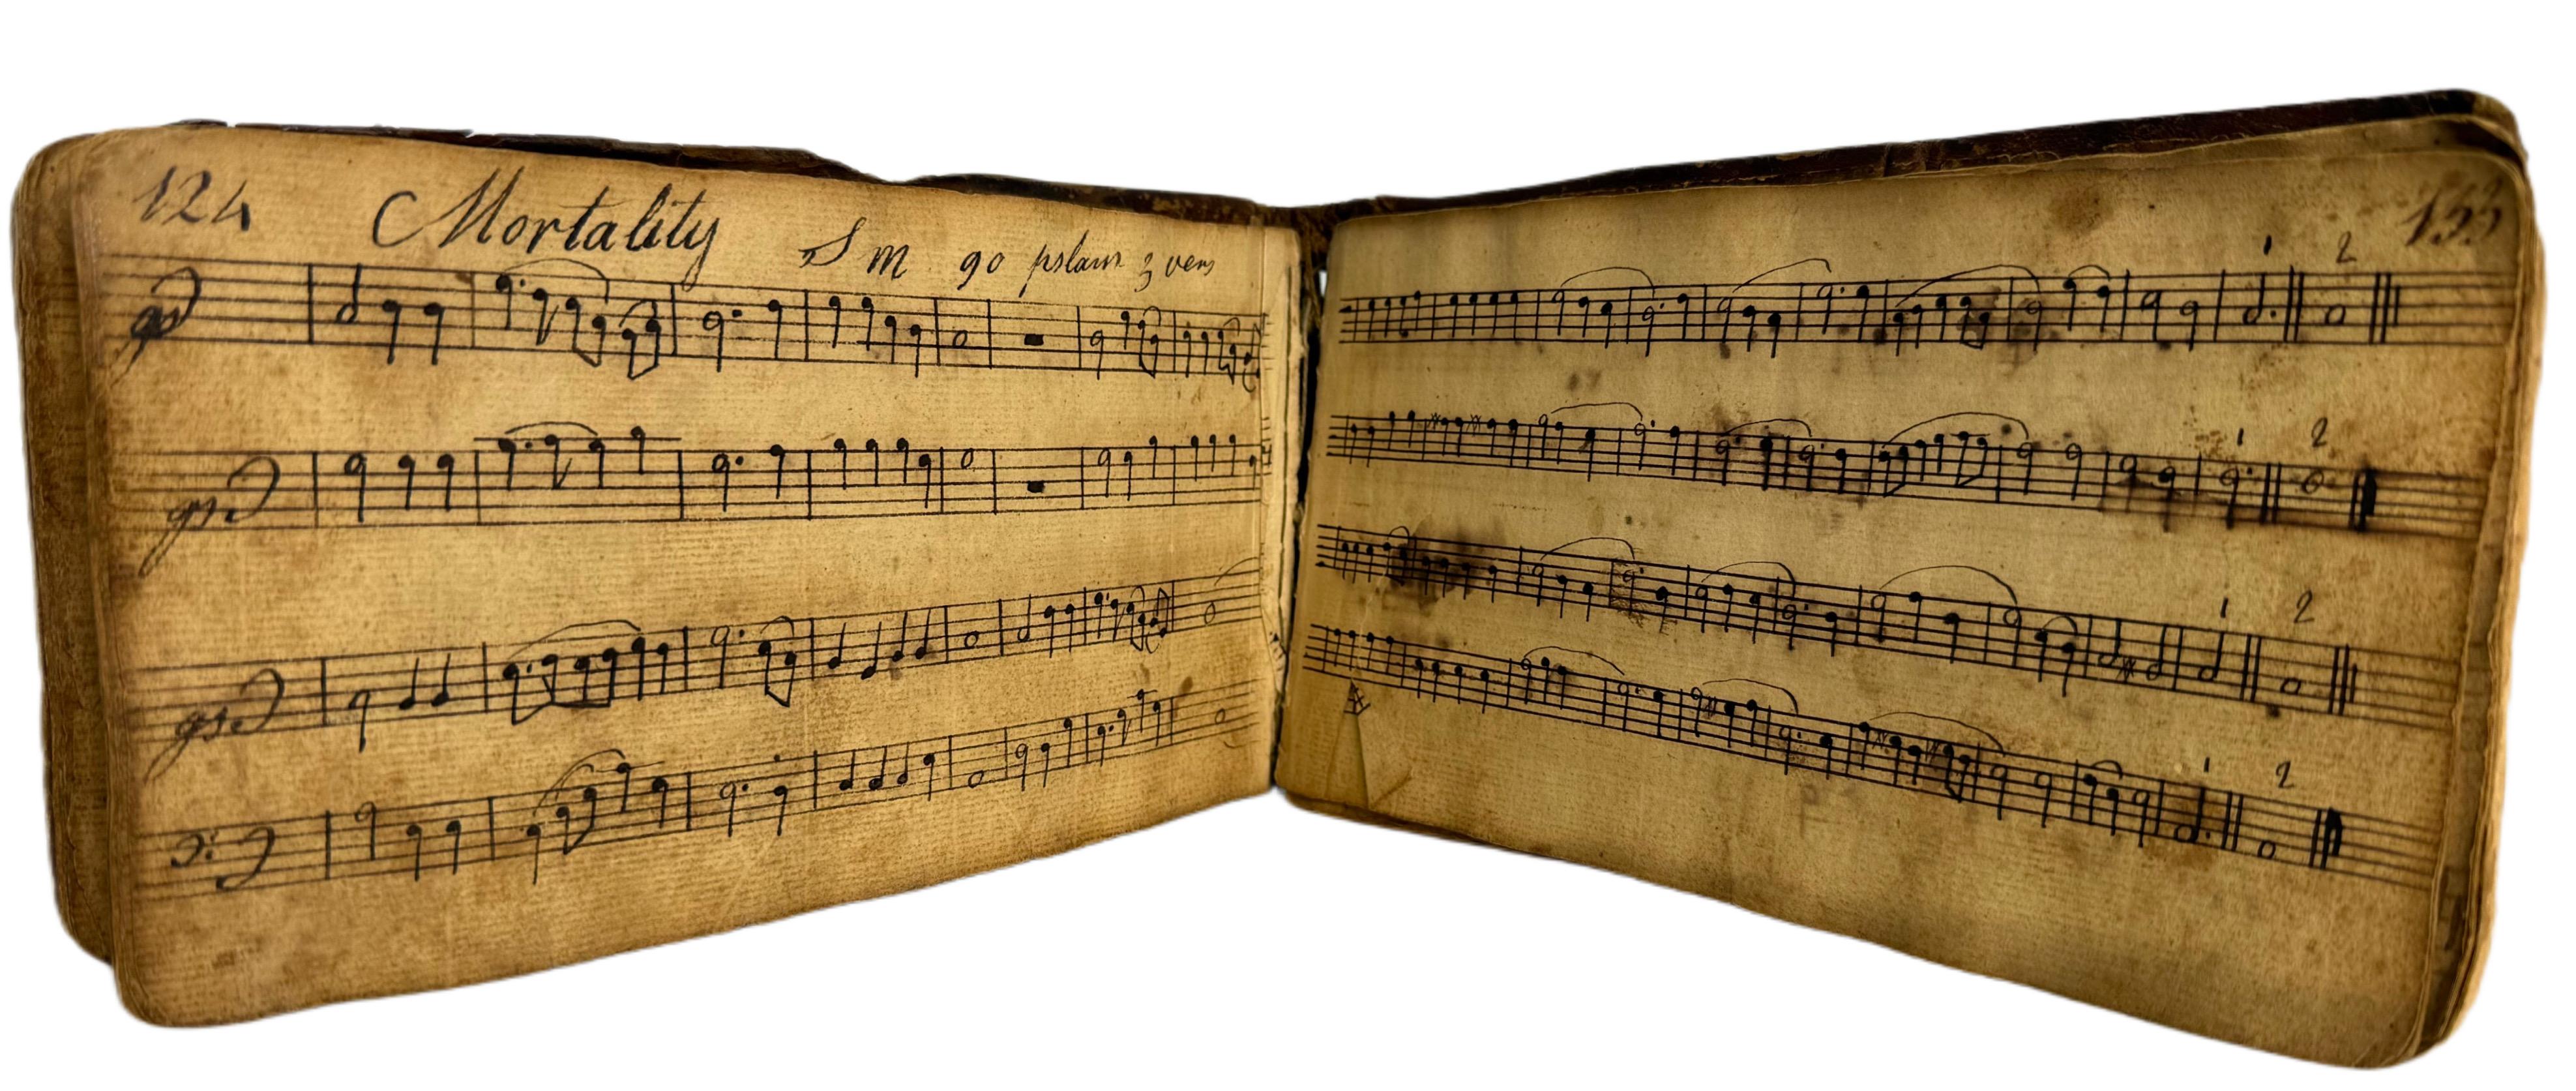 124
Mortality S m 90 pslam 3 vers
133
1 2
1 2
1 2
1 2